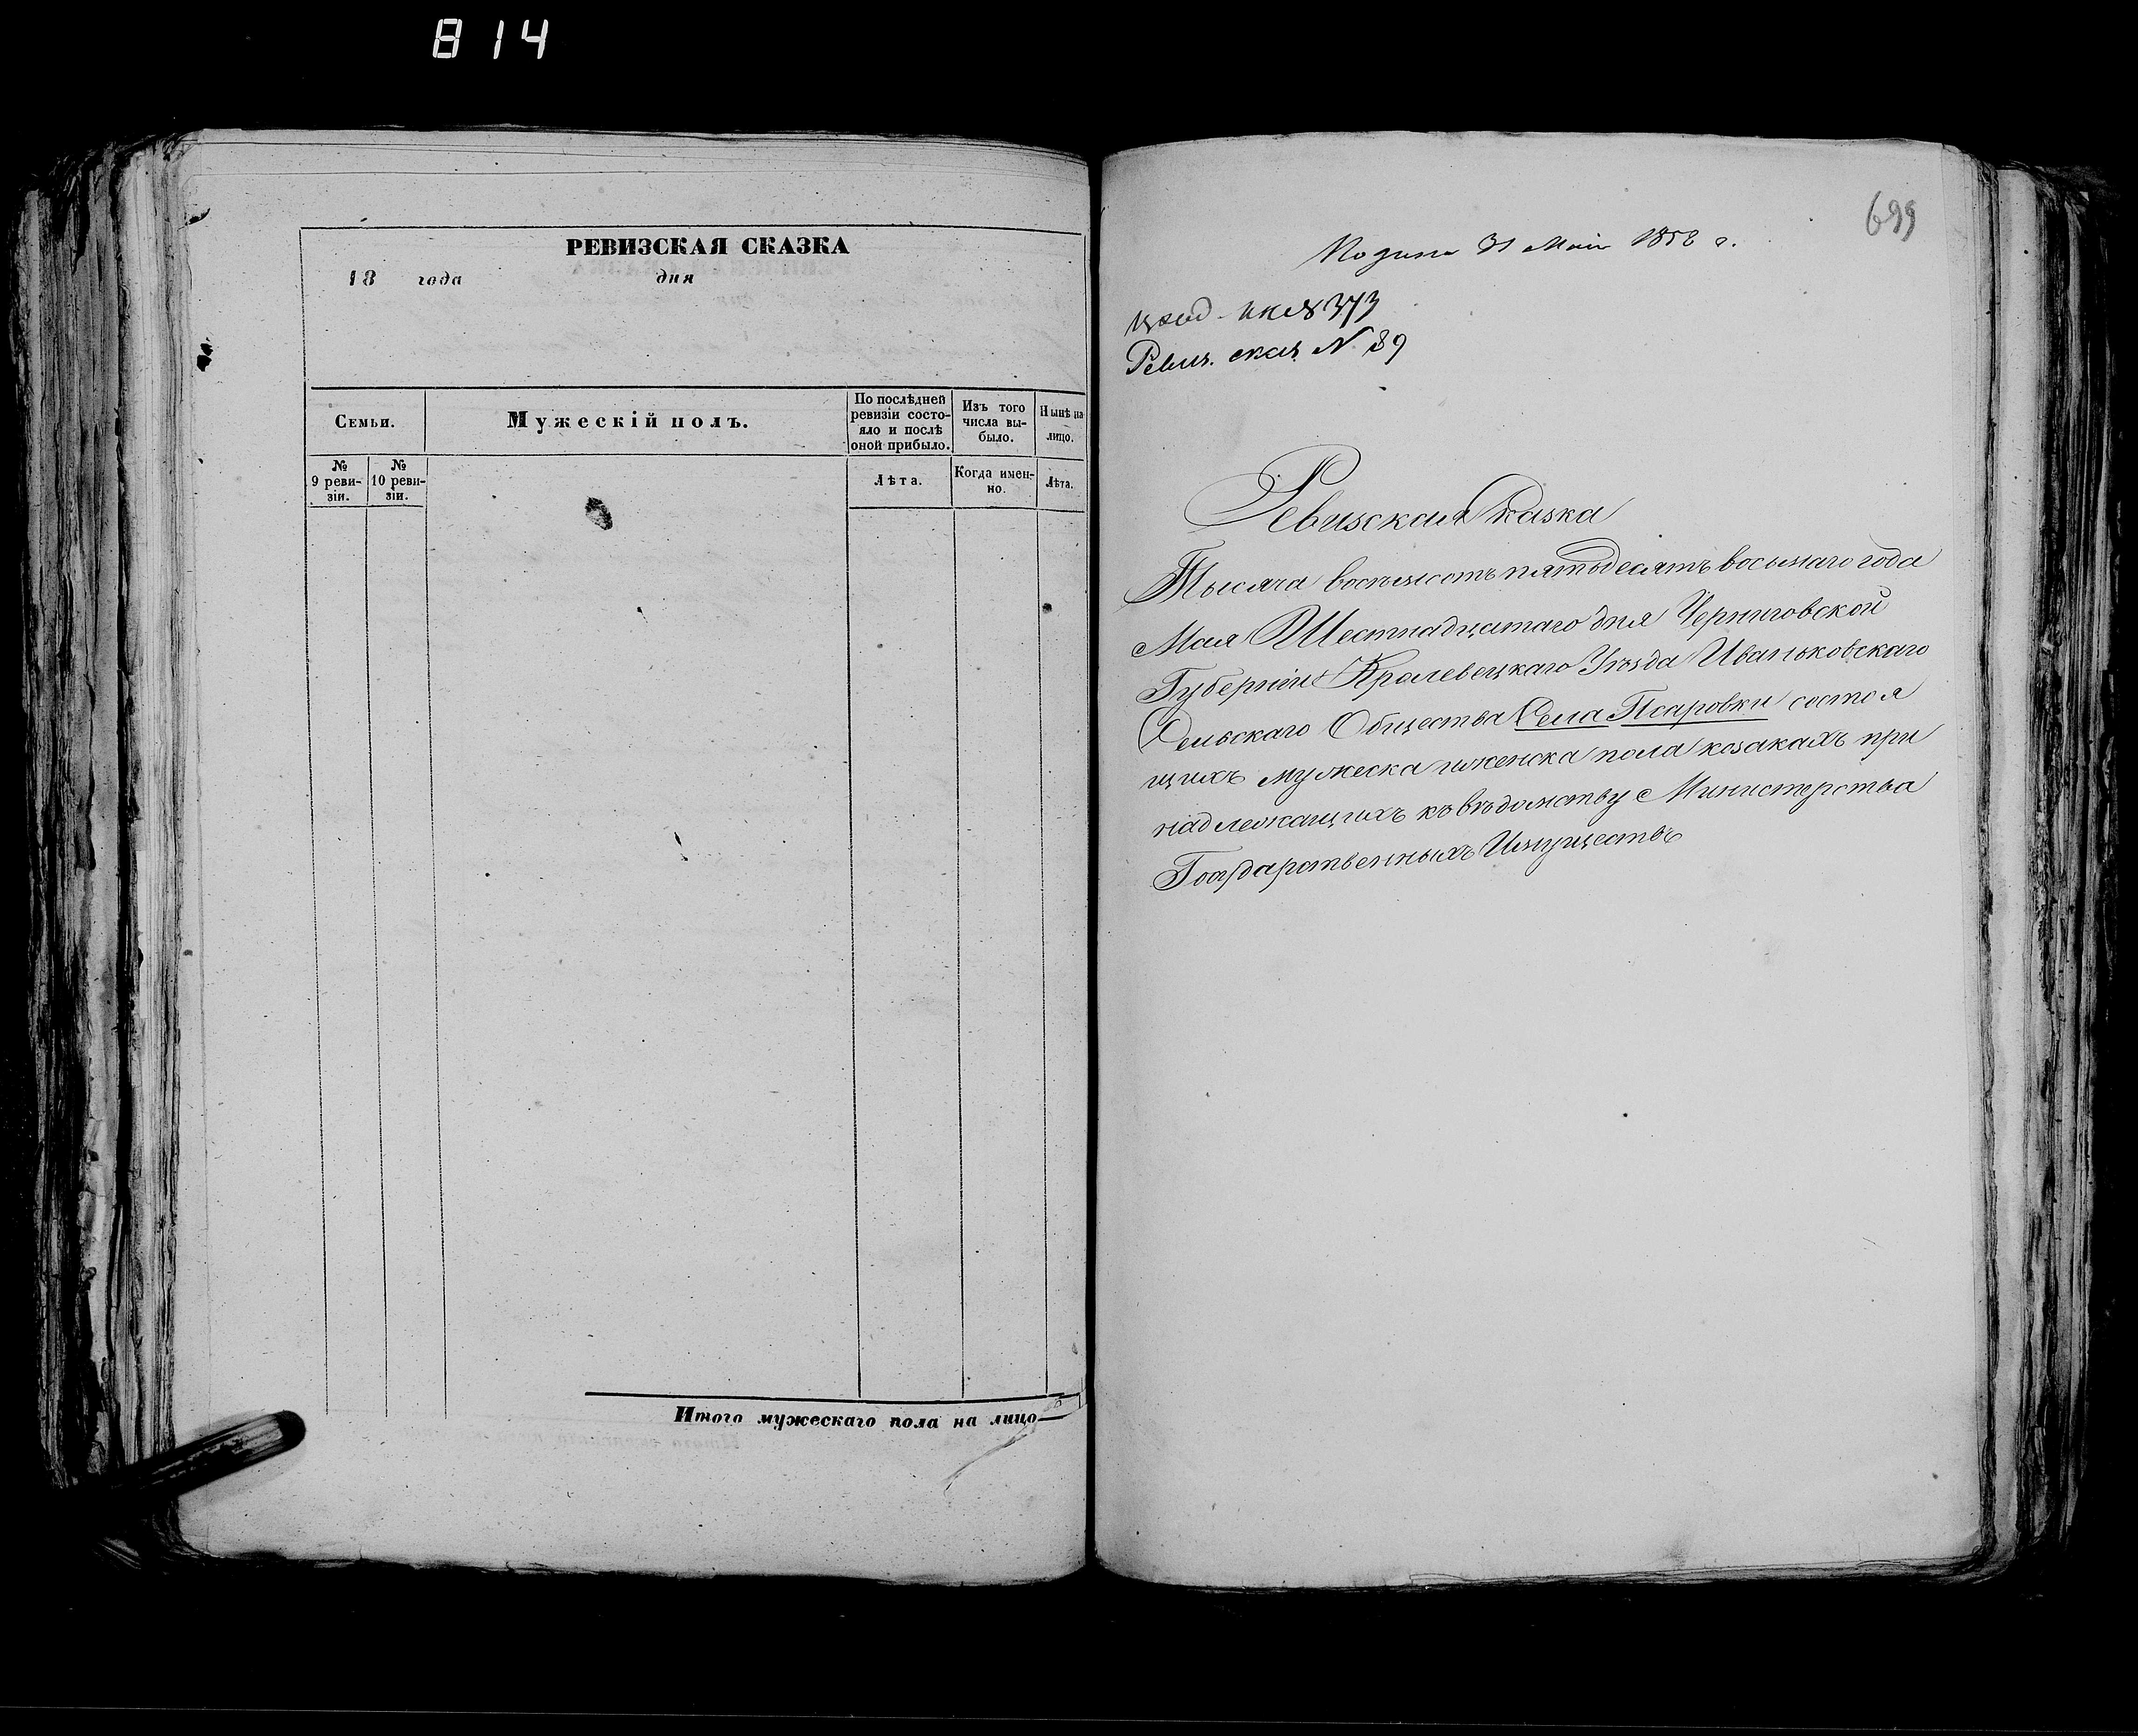 814
РЕВИЗСКАЯ СКАЗКА
18 года дня
Семьи.
Мужескій полъ.
По послѣдней ревизіи состо-
яло и послѣ
оной прибыло.
Изъ того
числа вы-
было.
Нынѣ на
лицо.
№
9 реви-
зіи.
№
10 реви-
зіи.
Лѣта.
Когда имен-
но.
Лѣта.
Итого мужескаго пола на лицо
699
31 Мая 1858 г.
373
Ревиз. сказ. N 89
Ревизская Сказка
Тысяча восемьсотъ пятьдесятъ восьмаго года
Мая Шестнадцатаго дня Черниговской
Губерніи Кролевецкаго Уѣзда Иваньковскаго
Сельскаго Общества Села Псаровки состоя
щихъ мужеска и женска пола козакахъ при
надлежащихъ къ вѣдомству Министерства
Государственныхъ Имуществъ